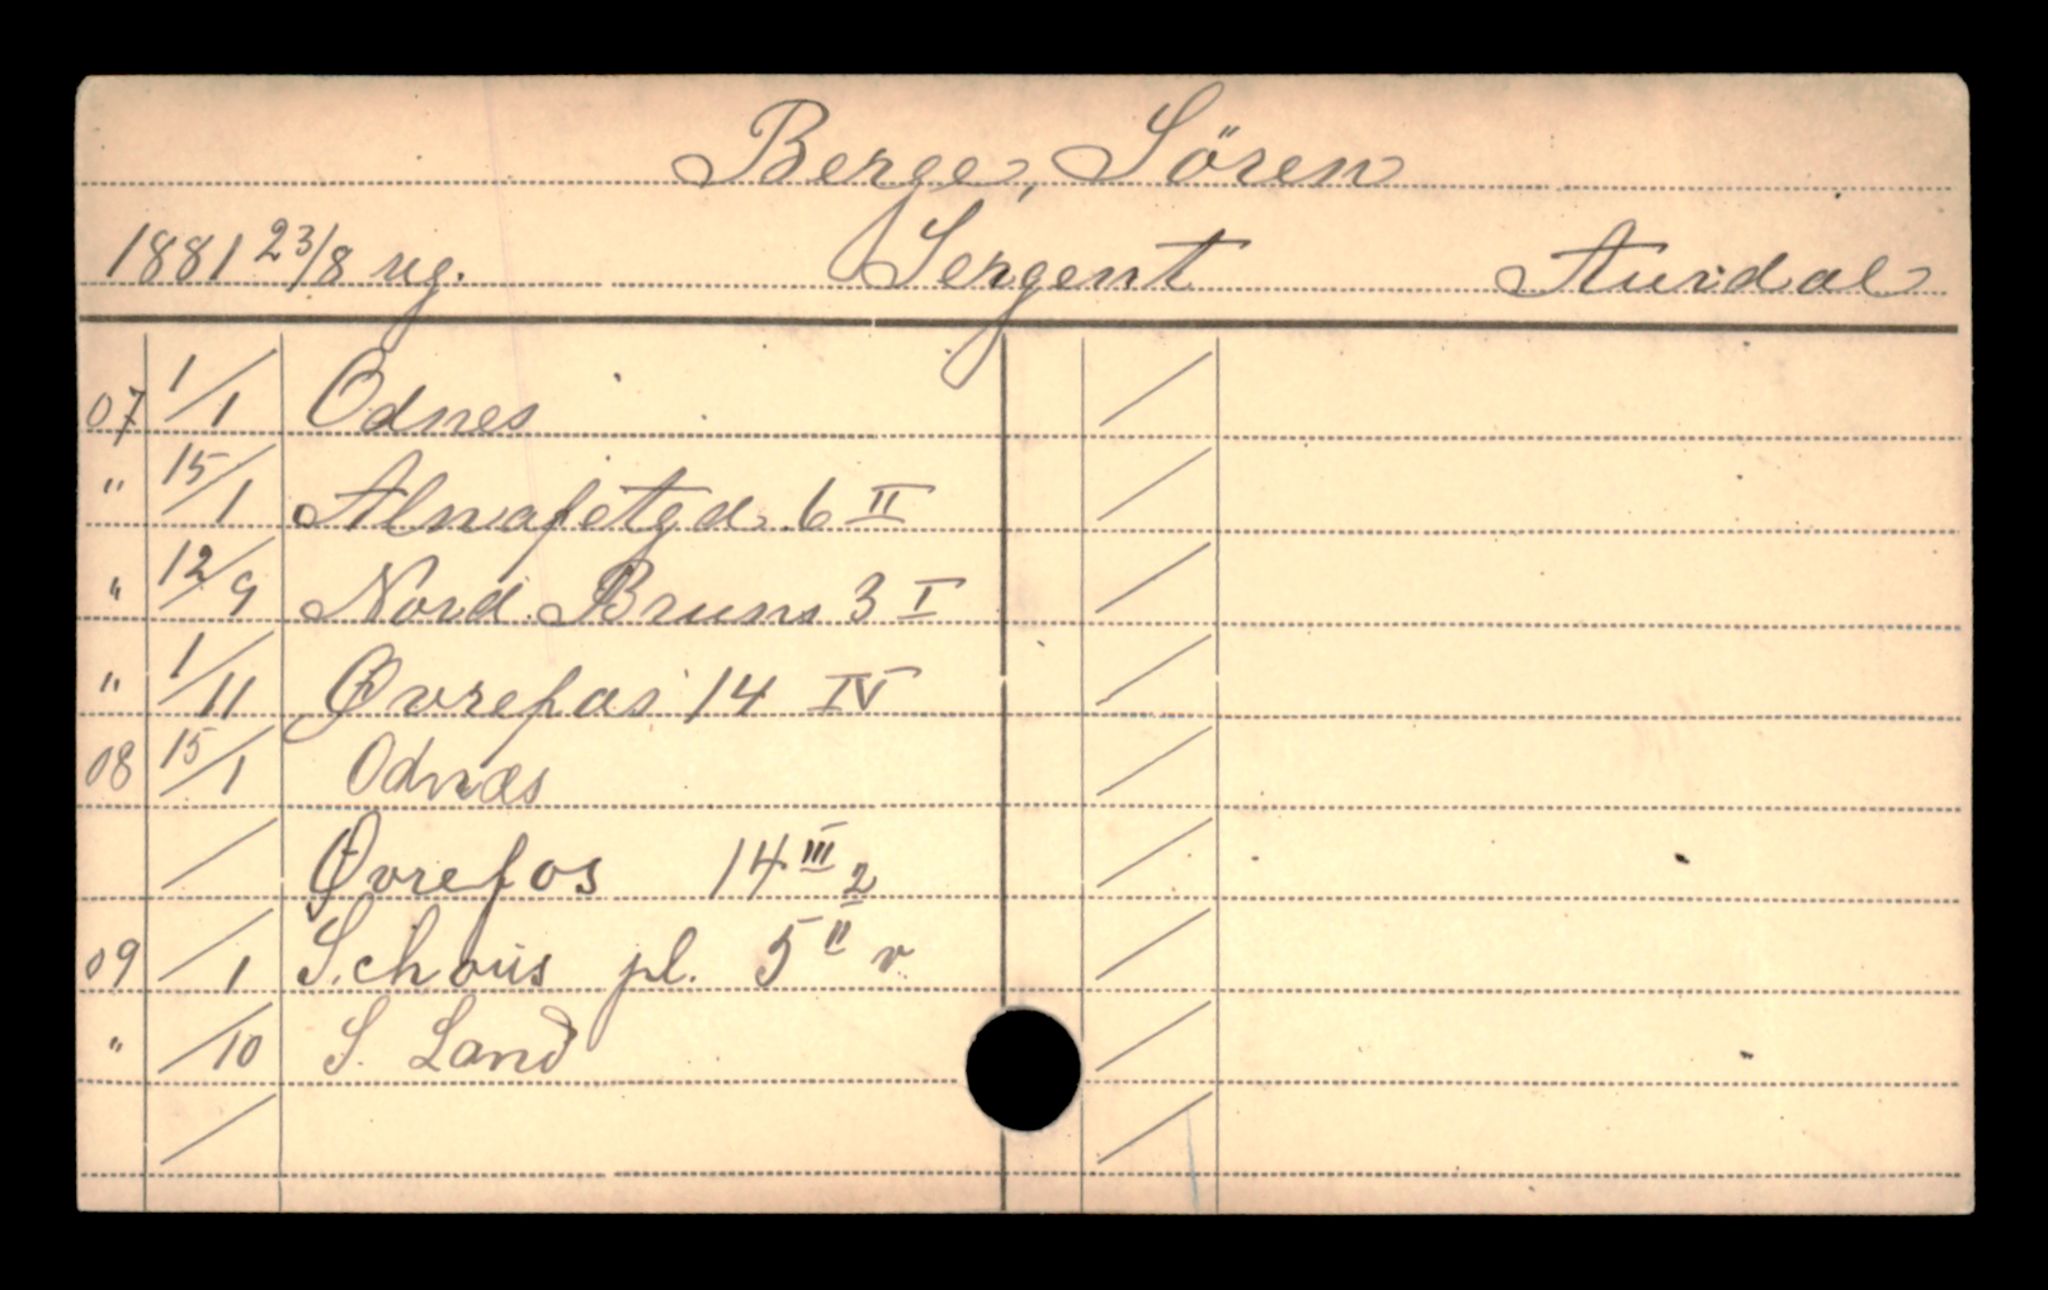 Berge, Sören
1881 23/8 ug. Sergent Aurdal
07 1/1 Odnes
" 15/1 Alnafetgd. 6 II
" 12/9 Nord. Bruns 3 I
" 1/11 Øvrefos 14 IV
08 15/1 Odnæs
/ Øvrefos 14 III 2
09 /1 Schous pl. 5 II v
" /10 S. Land